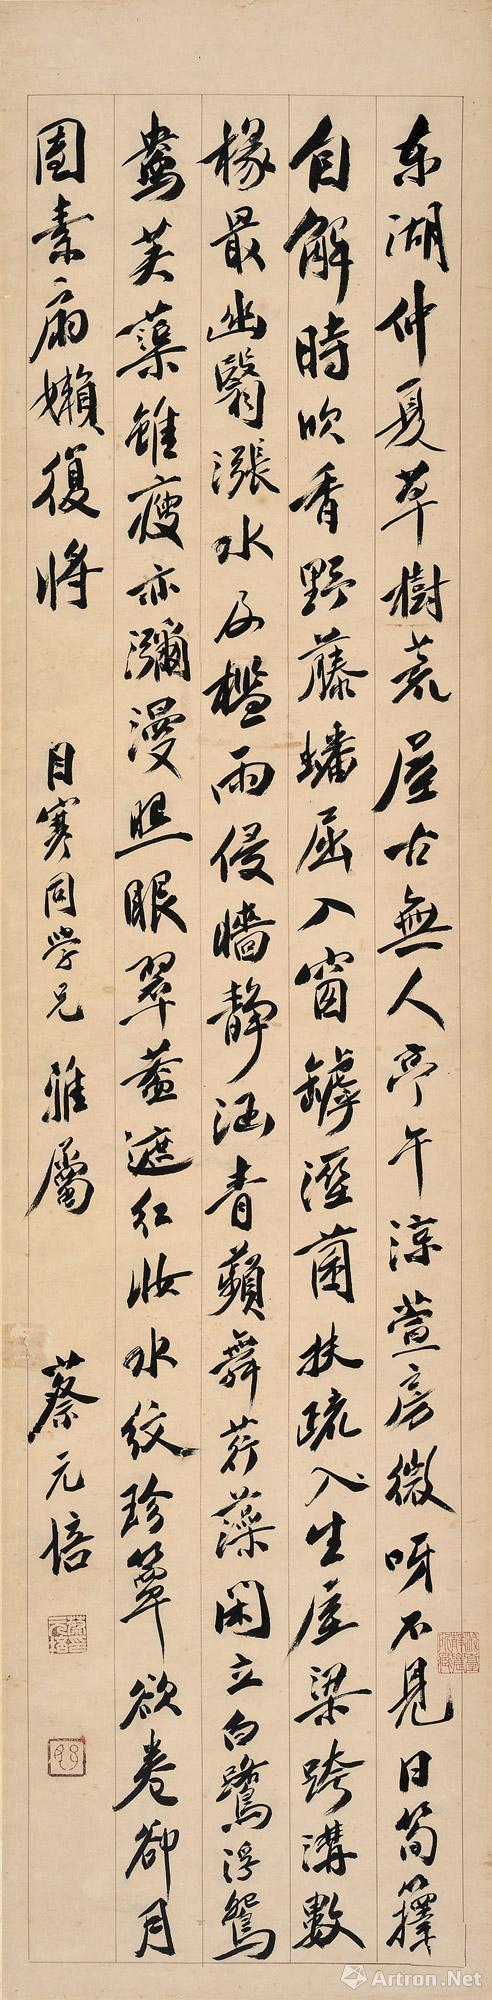 東湖仲夏草樹荒屋古無人亭午涼萱房微呀不見日筍籜
自解時吹香野藤蟠屈入窗罅溼菌扶疏入生屋梁跨溝數
椽最幽翳漲水及檻雨侵牆靜涵青蘋舞荇藻閑立白鷺浮鴛
鴦芙蕖雖瘦亦瀰漫照眼翠蓋遮紅妝水紋珍簟欲卷卻月
團素扇嬾復將
目寒同學兄 雅屬
蔡元培
Artron.Net